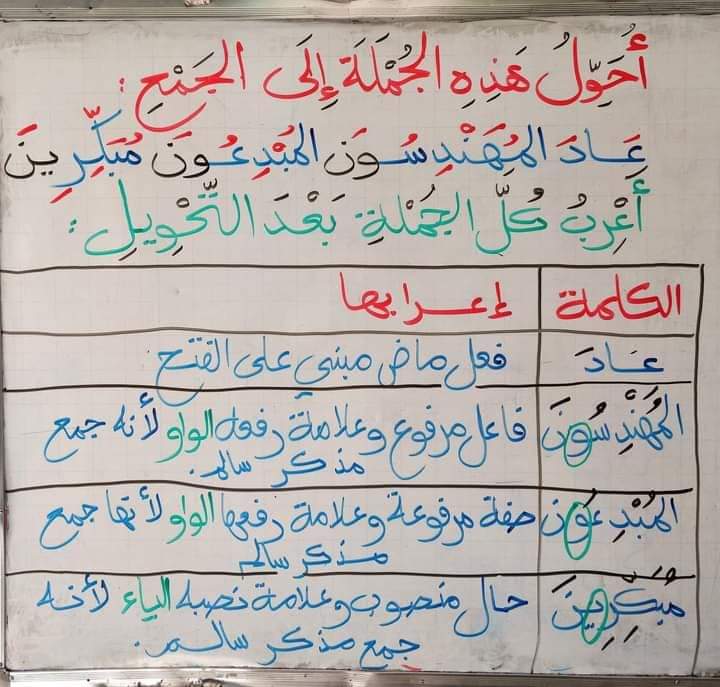 أُحَوِّلُ هَذِهِ الجُمْلَةَ إِلَى الجَمْعِ :
عَادَ المُهَنْدِسُونَ المُبْدِعُونَ مُبَكِّرِينَ
أُعْرِبُ كُلَّ الجُمْلَةِ بَعْدَ التَّحْوِيلِ :
الكلمة إعرابها
عَادَ فعل ماض مبني على الفتح
المُهَنْدِسُونَ فاعل مرفوع وعلامة رفعه الواو لأنه جمع
مذكر سالم.
المُبْدِعُونَ صفة مرفوعة وعلامة رفعها الواو لأنها جمع
مذكر سالم
مُبَكِّرِينَ حال منصوب وعلامة نصبه الياء لأنه
جمع مذكر سالم.